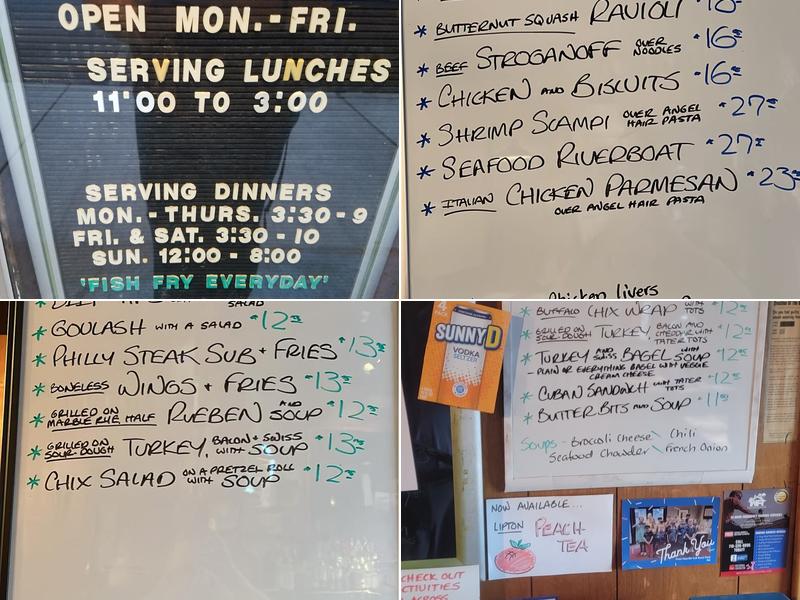 OPEN MON.-FRI.
SERVING LUNCHES
11'00 TO 3:00
SERVING DINNERS
MON.-THURS. 3:30-9
FRI. & SAT. 3:30-10
SUN. 12:00-8:00
'FISH FRY EVERYDAY'
* BUTTERNUT SQUASH RAVIOLI
* BEEF STROGANOFF OVER NOODLES 16
* CHICKEN AND BISCUITS 16
* SHRIMP SCAMPI OVER ANGEL HAIR PASTA 27
* SEAFOOD RIVERBOAT 27
* ITALIAN CHICKEN PARMESAN 23
OVER ANGEL HAIR PASTA
Chicken livers
SALAD
* GOULASH WITH A SALAD 12
* PHILLY STEAK SUB + FRIES 13
* BONELESS WINGS + FRIES 13
* GRILLED ON MARBLE RYE, HALF RUEBEN AND SOUP 12
* GRILLED ON SOUR-DOUGH TURKEY, BACON + SWISS WITH SOUP 13
* CHIX SALAD ON A PRETZEL ROLL WITH SOUP 12
4 PACK
SUNNYD
VODKA
SELTZER
* BUFFALO CHIX WRAP WITH TOTS 12
* GRILLED ON SOUR-DOUGH TURKEY BACON AND CHEDDAR WITH TATER TOTS 12
* TURKEY AND SWISS BAGEL WITH SOUP 12
- PLAIN OR EVERYTHING BAGEL WITH VEGGIE CREAM CHEESE
* CUBAN SANDWICH WITH TATER TOTS 12
* BUTTER BITS AND SOUP 11
Soups - Broccoli Cheese \ Chili
Seafood Chowder \ French Onion
NOW AVAILABLE...
LIPTON PEACH
TEA
Thank You
CHECK OUT
ACROSS